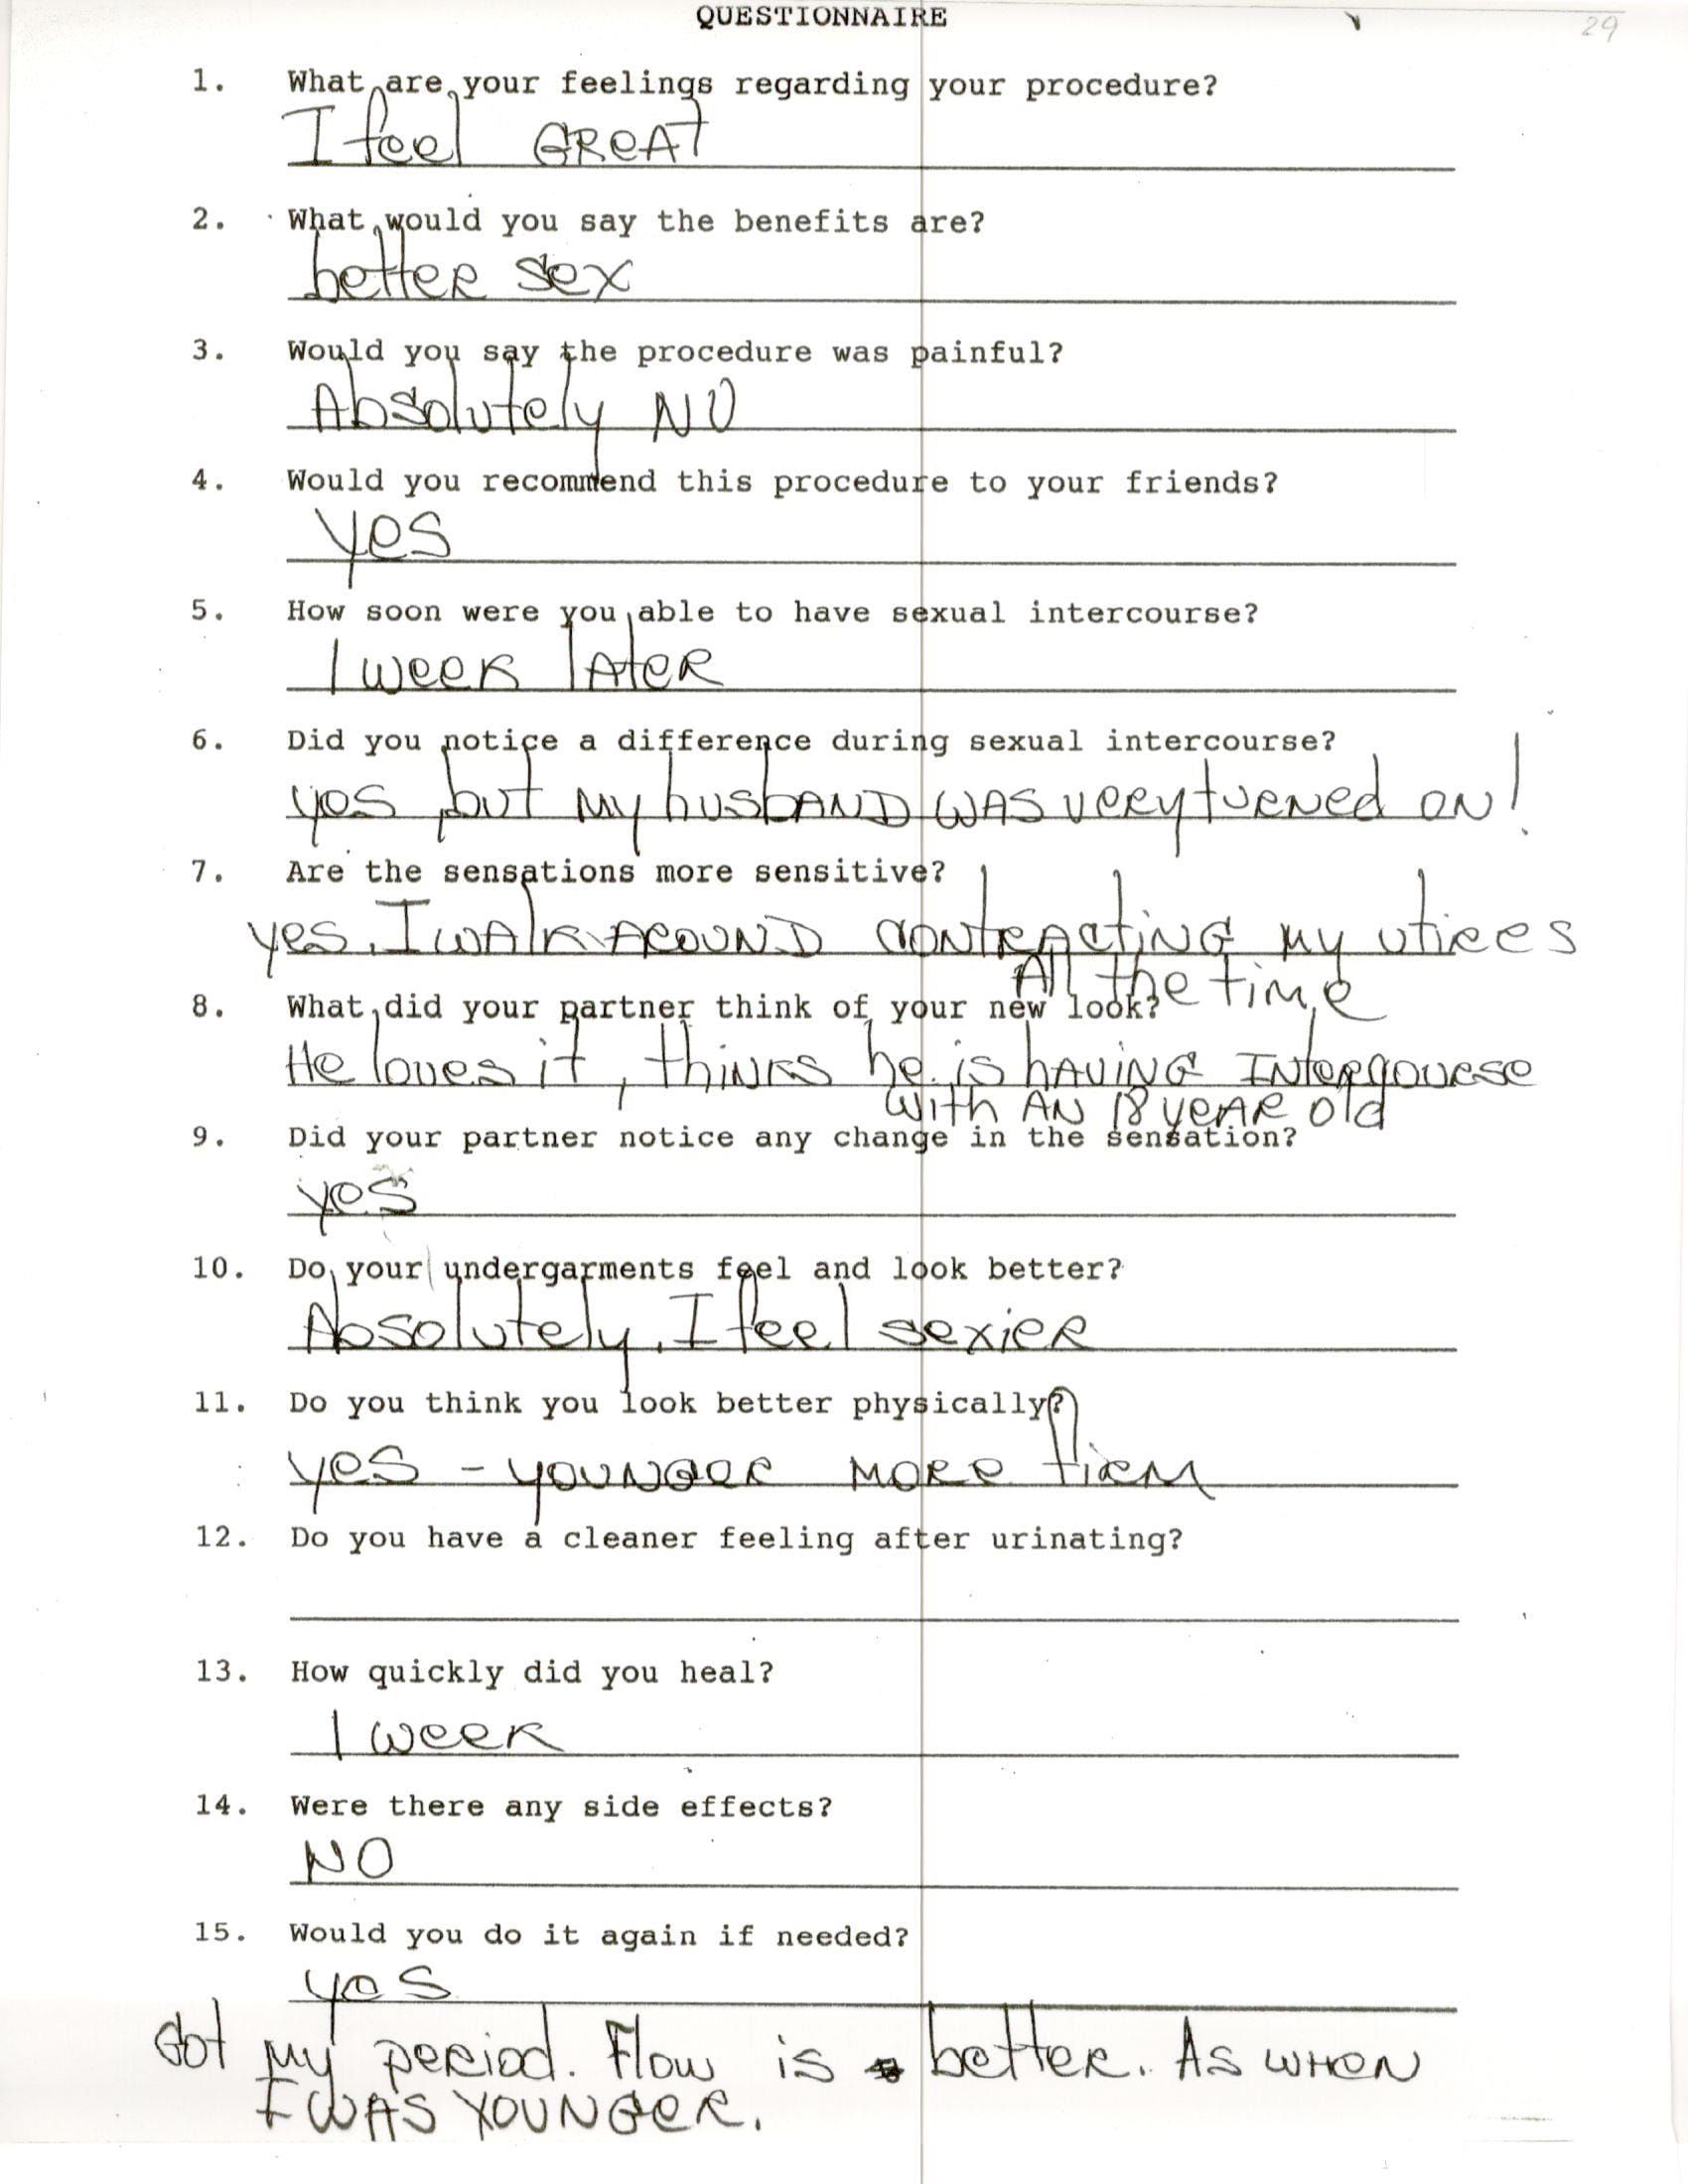 QUESTIONNAIRE
29
1. What are your feelings regarding your procedure?
I feel GREAT
2. What would you say the benefits are?
better sex
3. Would you say the procedure was painful?
Absolutely NO
4. Would you recommend this procedure to your friends?
yes
5. How soon were you able to have sexual intercourse?
1 week later
6. Did you notice a difference during sexual intercourse?
yes, but my husband was very turned on!
7. Are the sensations more sensitive?
yes, I walk around contracting my utires
All the time
8. What did your partner think of your new look?
He loves it, thinks he is having Intercourse
with an 18 year old
9. Did your partner notice any change in the sensation?
yes
10. Do your undergarments feel and look better?
Absolutely, I feel sexier
11. Do you think you look better physically?
yes - younger more firm
12. Do you have a cleaner feeling after urinating?
13. How quickly did you heal?
1 week
14. Were there any side effects?
NO
15. Would you do it again if needed?
yes
Got my period. Flow is better. As when
I was younger.